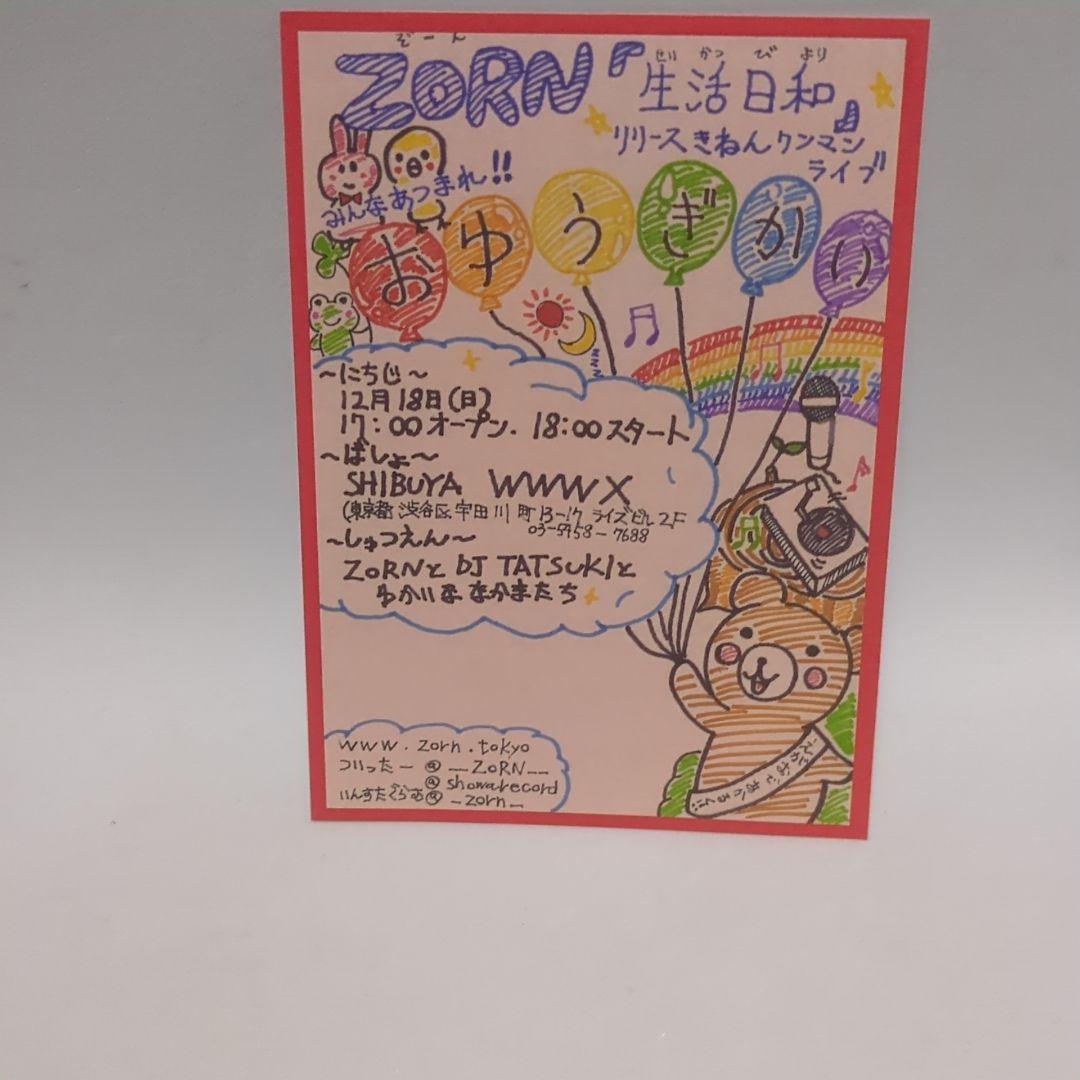 ぞーん
ZORN『生活日和』
せいかつびより
リリースきねんワンマン
ライブ
みんなあつまれ!!
おゆうぎかい
〜にちじ〜
12月18日(日)
17:00オープン. 18:00スタート
〜ばしょ〜
SHIBUYA WWW X
(東京都渋谷区宇田川町13-17 ライズビル2F
03-5458-7688
〜しゅつえん〜
ZORNとDJ TATSUKIと
ゆかいななかまたち
www.zorn.tokyo
ついったー @__ZORN__
@showarecord
いんすたぐらむ@_zorn_